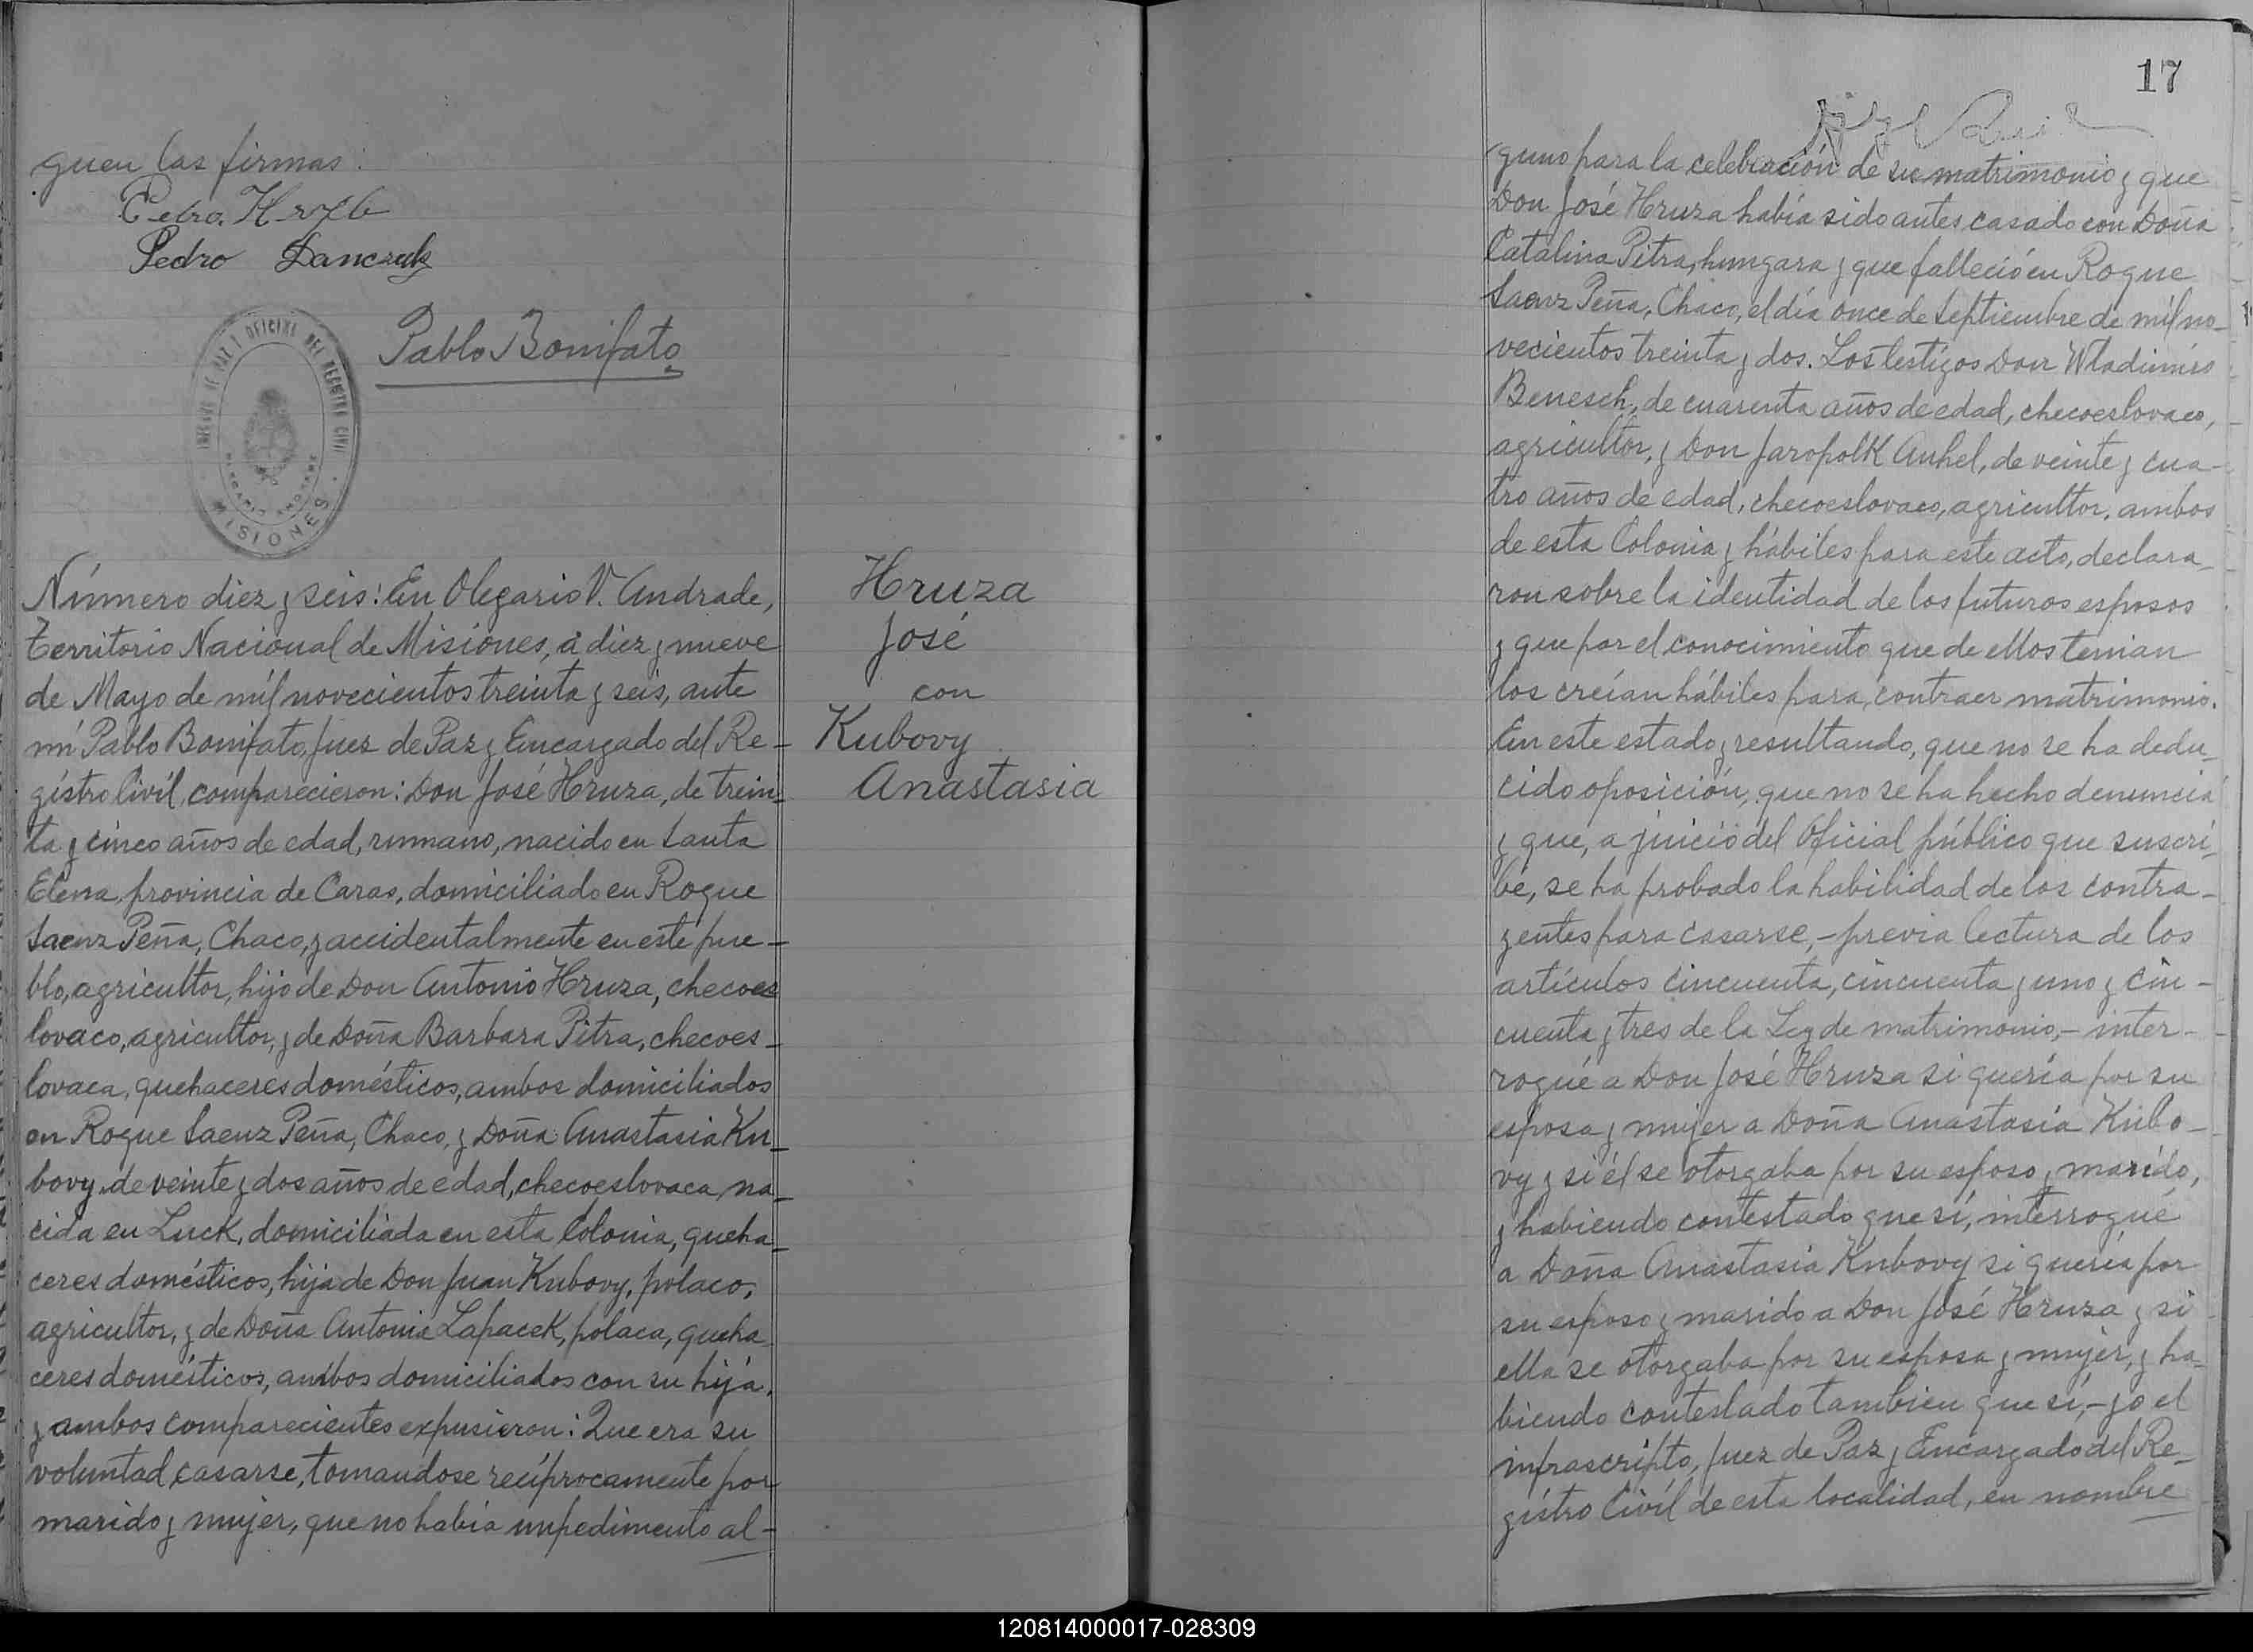 guen las firmas:
Pedro
Pedro Danczuk
Pablo Bonifato
OFICINA DEL REGISTRO CIVIL
MISIONES
Número diez y seis: En Olegario V. Andrade,
Territorio Nacional de Misiones, a diez y nueve
de Mayo de mil novecientos treinta y seis, ante
mí Pablo Bonifato, Juez de Paz y Encargado del Re-
gistro Civil, comparecieron: Don José Hruza, de trein-
ta y cinco años de edad, rumano, nacido en Santa
Elena, provincia de Caras, domiciliado en Roque
Saenz Peña, Chaco, y accidentalmente en este pue-
blo, agricultor, hijo de Don Antonio Hruza, checoes
lovaco, agricultor, y de Doña Barbara Pitra, checoes-
lovaca, quehaceres domésticos, ambos domiciliados
en Roque Saenz Peña, Chaco, y Doña Anastasia Ku-
bovy, de veinte y dos años de edad, checoeslovaca, na-
cida en Luck, domiciliada en esta Colonia, queha-
ceres domésticos, hija de Don Juan Kubovy, polaco,
agricultor, y de Doña Antonia Lapacek, polaca, queha-
ceres domésticos, ambos domiciliados con su hija,
y ambos comparecientes expusieron: Que era su
voluntad casarse, tomandose recíprocamente por
marido y mujer, que no había impedimento al-
Hruza
José
con
Kubovy
Anastasia
17
guno para la celebración de su matrimonio y que
Don José Hruza había sido antes casado con Doña
Catalina Pitra, hungara y que falleció en Roque
Saenz Peña, Chaco, el día once de Septiembre de mil no-
vecientos treinta y dos. Los testigos Don Wladimiro
Benesch, de cuarenta años de edad, checoeslovaco,
agricultor, y Don Jaropolk Anhel, de veinte y cua-
tro años de edad, checoeslovaco, agricultor, ambos
de esta Colonia y hábiles para este acto, declara-
ron sobre la identidad de los futuros esposos
y que por el conocimiento que de ellos tenian
los creían hábiles para contraer matrimonio.
En este estado y resultando, que no se ha dedu-
cido oposición, que no se ha hecho denuncia
y que, a juicio del Oficial público que suscri-
be, se ha probado la habilidad de los contra-
yentes para casarse,- previa lectura de los
artículos cincuenta, cincuenta y uno y cin-
cuenta y tres de la Ley de matrimonio,- inter-
rogué a Don José Hruza si quería por su
esposa y mujer a Doña Anastasia Kubo-
vy y si él se otorgaba por su esposo y marido,
y habiendo contestado que sí, interrogué
a Doña Anastasia Kubovy si quería por
su esposo y marido a Don José Hruza y si
ella se otorgaba por su esposa y mujer, y ha-
biendo contestado tambien que sí,- yo el
infrascripto, Juez de Paz y Encargado del Re-
gistro Civil de esta localidad, en nombre
120814000017-028309